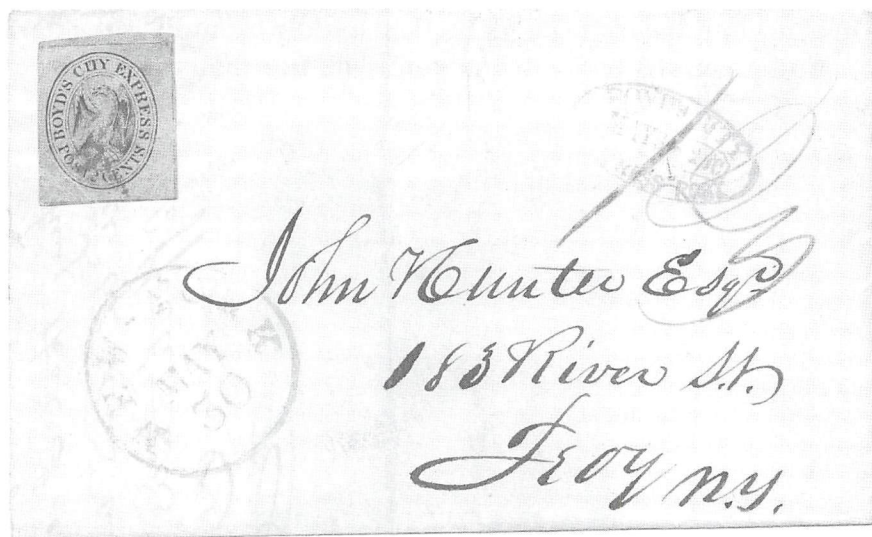 BOYD'S CITY EXPRESS
POST 2 CENTS
NEW YORK
20
John Hunter Esqr
183 River St.
Troy N.Y.